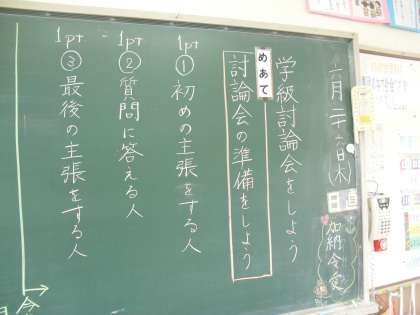 六月二十六日(木)
日直
加納令愛
学級討論会をしよう
めあて
討論会の準備をしよう
1pt
①初めの主張をする人
1pt
②質問に答える人
1pt
③最後の主張をする人